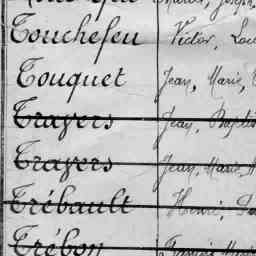 Touchefeu Victor, Lou
Touquet Jean, Marie,
Travers Jean, Baptis
Travers Jean, Marie,
Trébault Henri,
Trébon